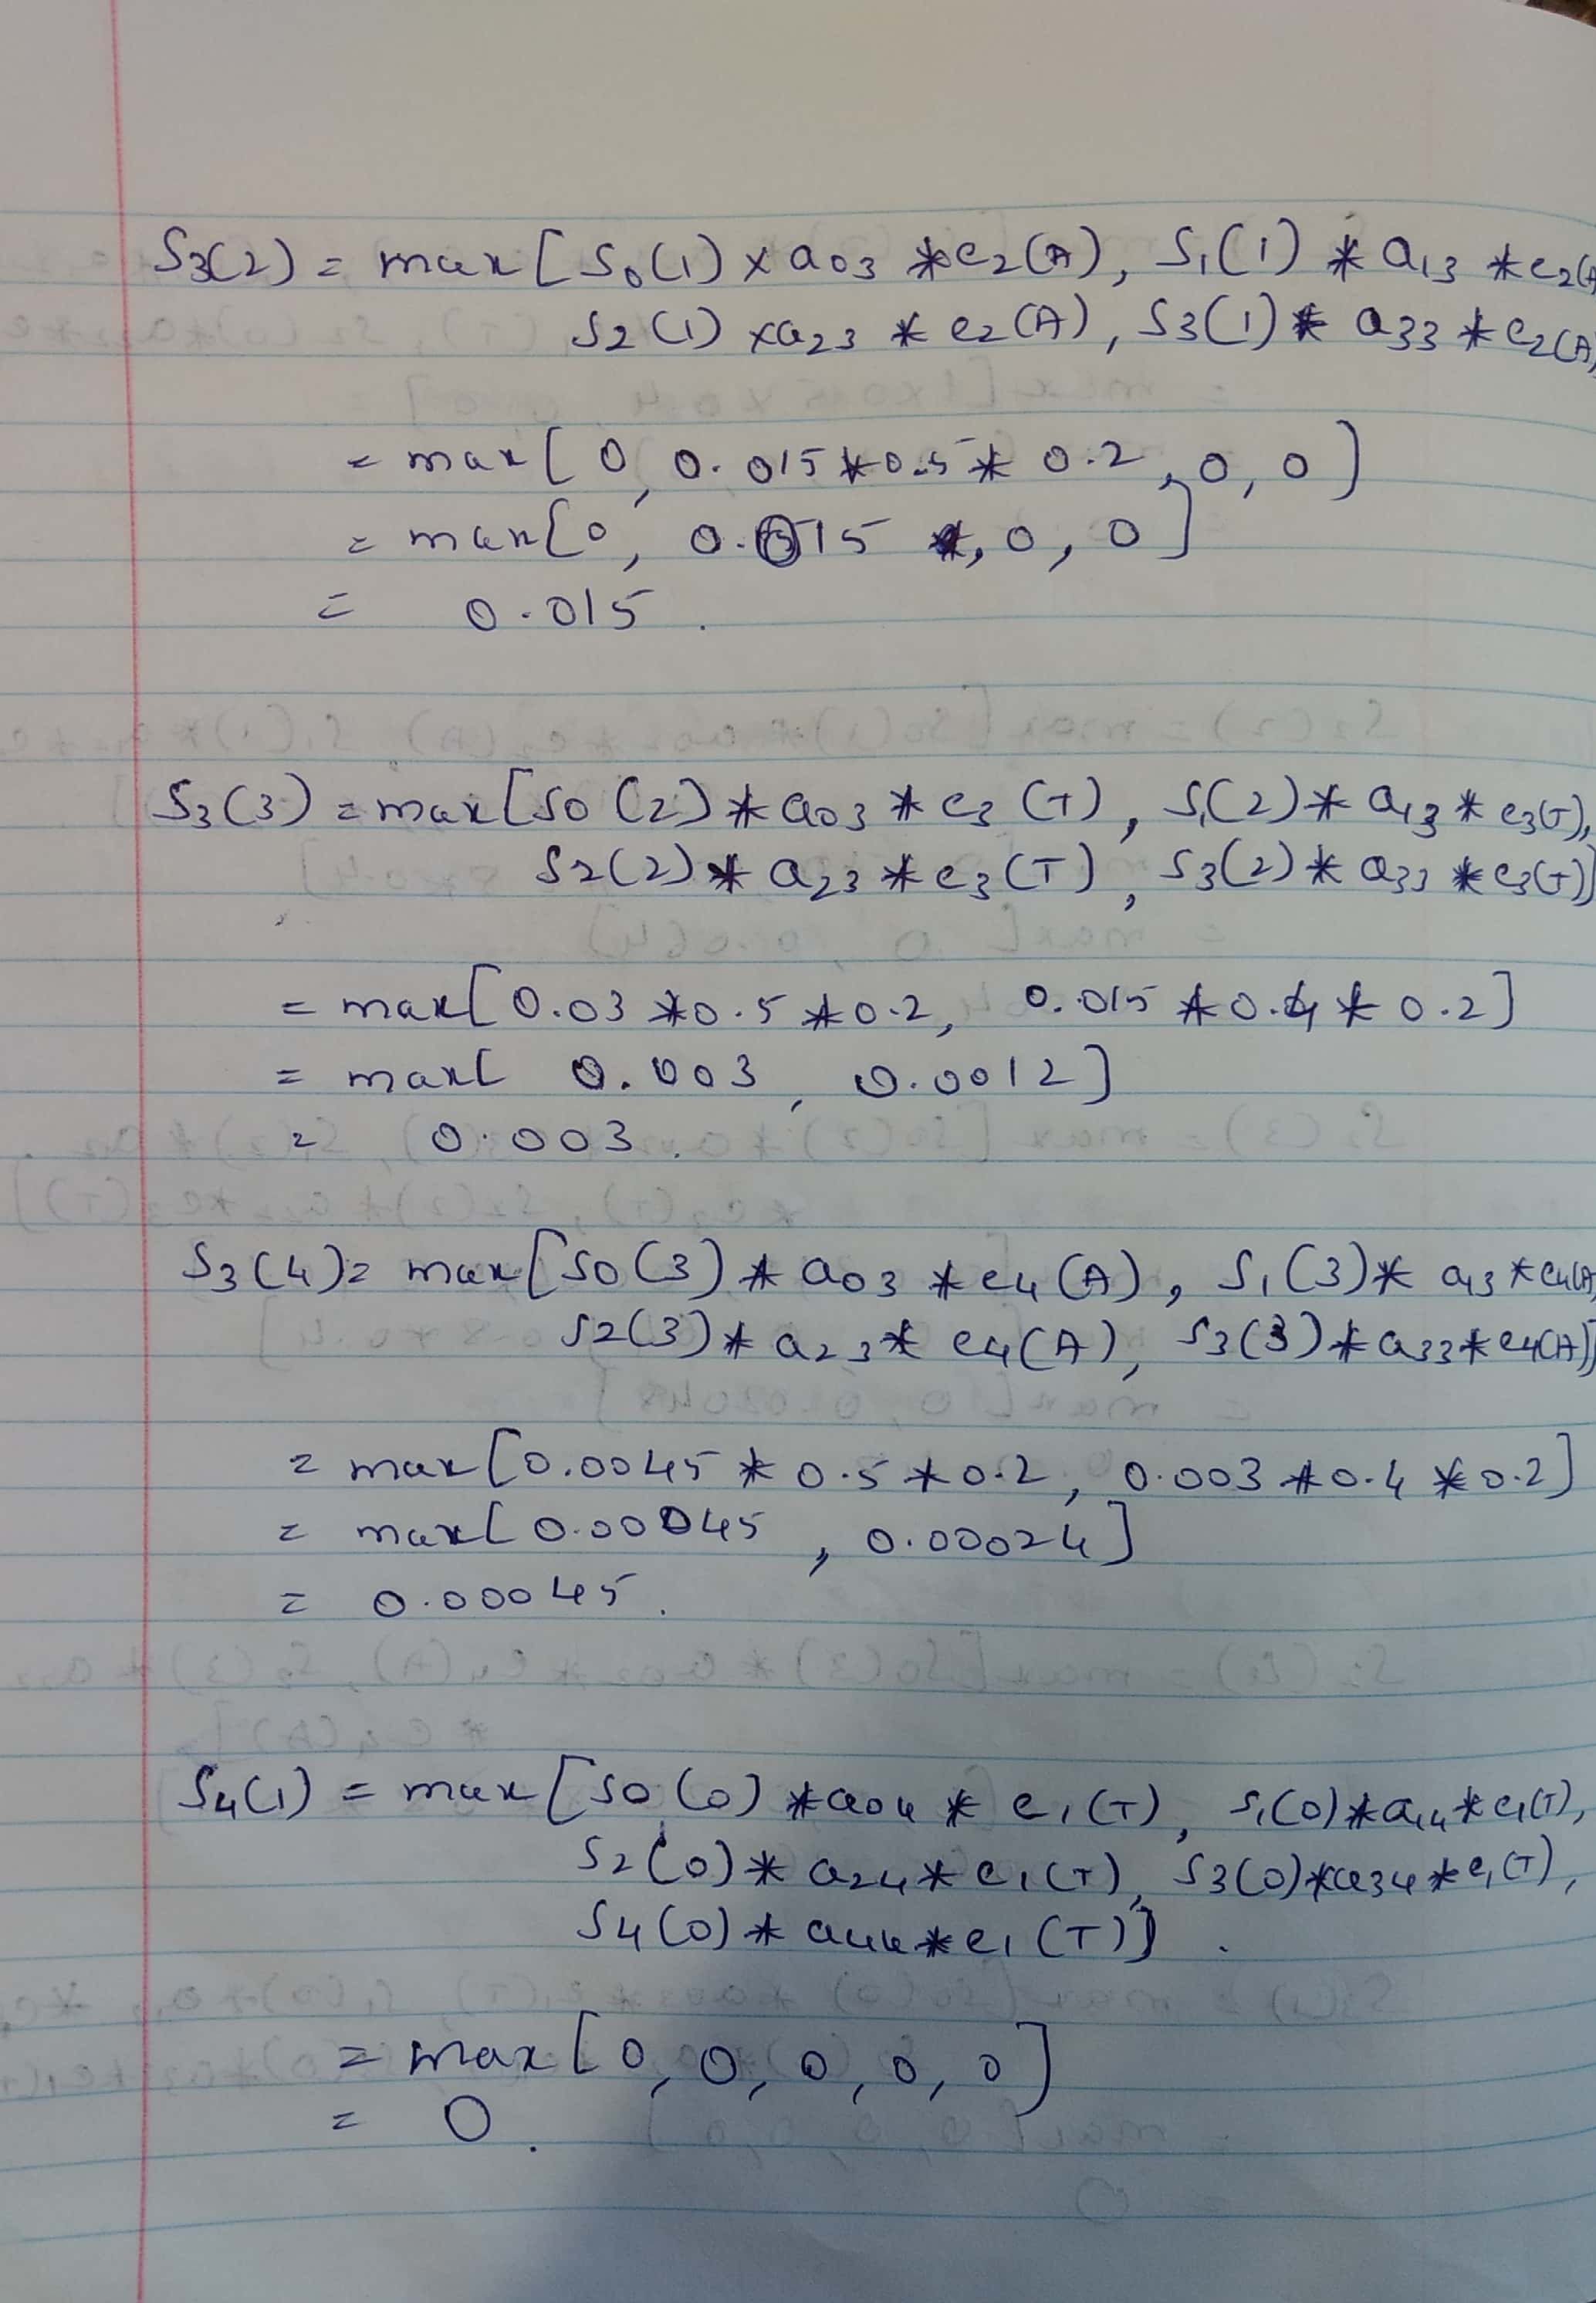 S3(2) = max[S0(1) x a03 * e2(A), S1(1) * a13 * e2(A
S2(1) x a23 * e2(A), S3(1) * a33 * e2(A)
= max[0, 0.015 * 0.5 * 0.2, 0, 0]
= max[0, 0.015 , 0, 0]
= 0.015.
S3(3) = max[S0(2) * a03 * e3(T), S1(2) * a13 * e3(T),
S2(2) * a23 * e3(T), S3(2) * a33 * e3(T)]
= max[0.03 * 0.5 * 0.2, 0.015 * 0.4 * 0.2]
= max[ 0.003, 0.0012]
= 0.003.
S3(4) = max[S0(3) * a03 * e4(A), S1(3) * a13 * e4(A
S2(3) * a23 * e4(A), S3(3) * a33 * e4(A)]
= max[0.0045 * 0.5 * 0.2, 0.003 * 0.4 * 0.2]
= max[0.00045, 0.00024]
= 0.00045.
S4(1) = max[S0(0) * a04 * e1(T), S1(0) * a14 * e1(T),
S2(0) * a24 * e1(T), S3(0) * a34 * e1(T),
S4(0) * a44 * e1(T)].
= max[0, 0, 0, 0, 0]
= 0.